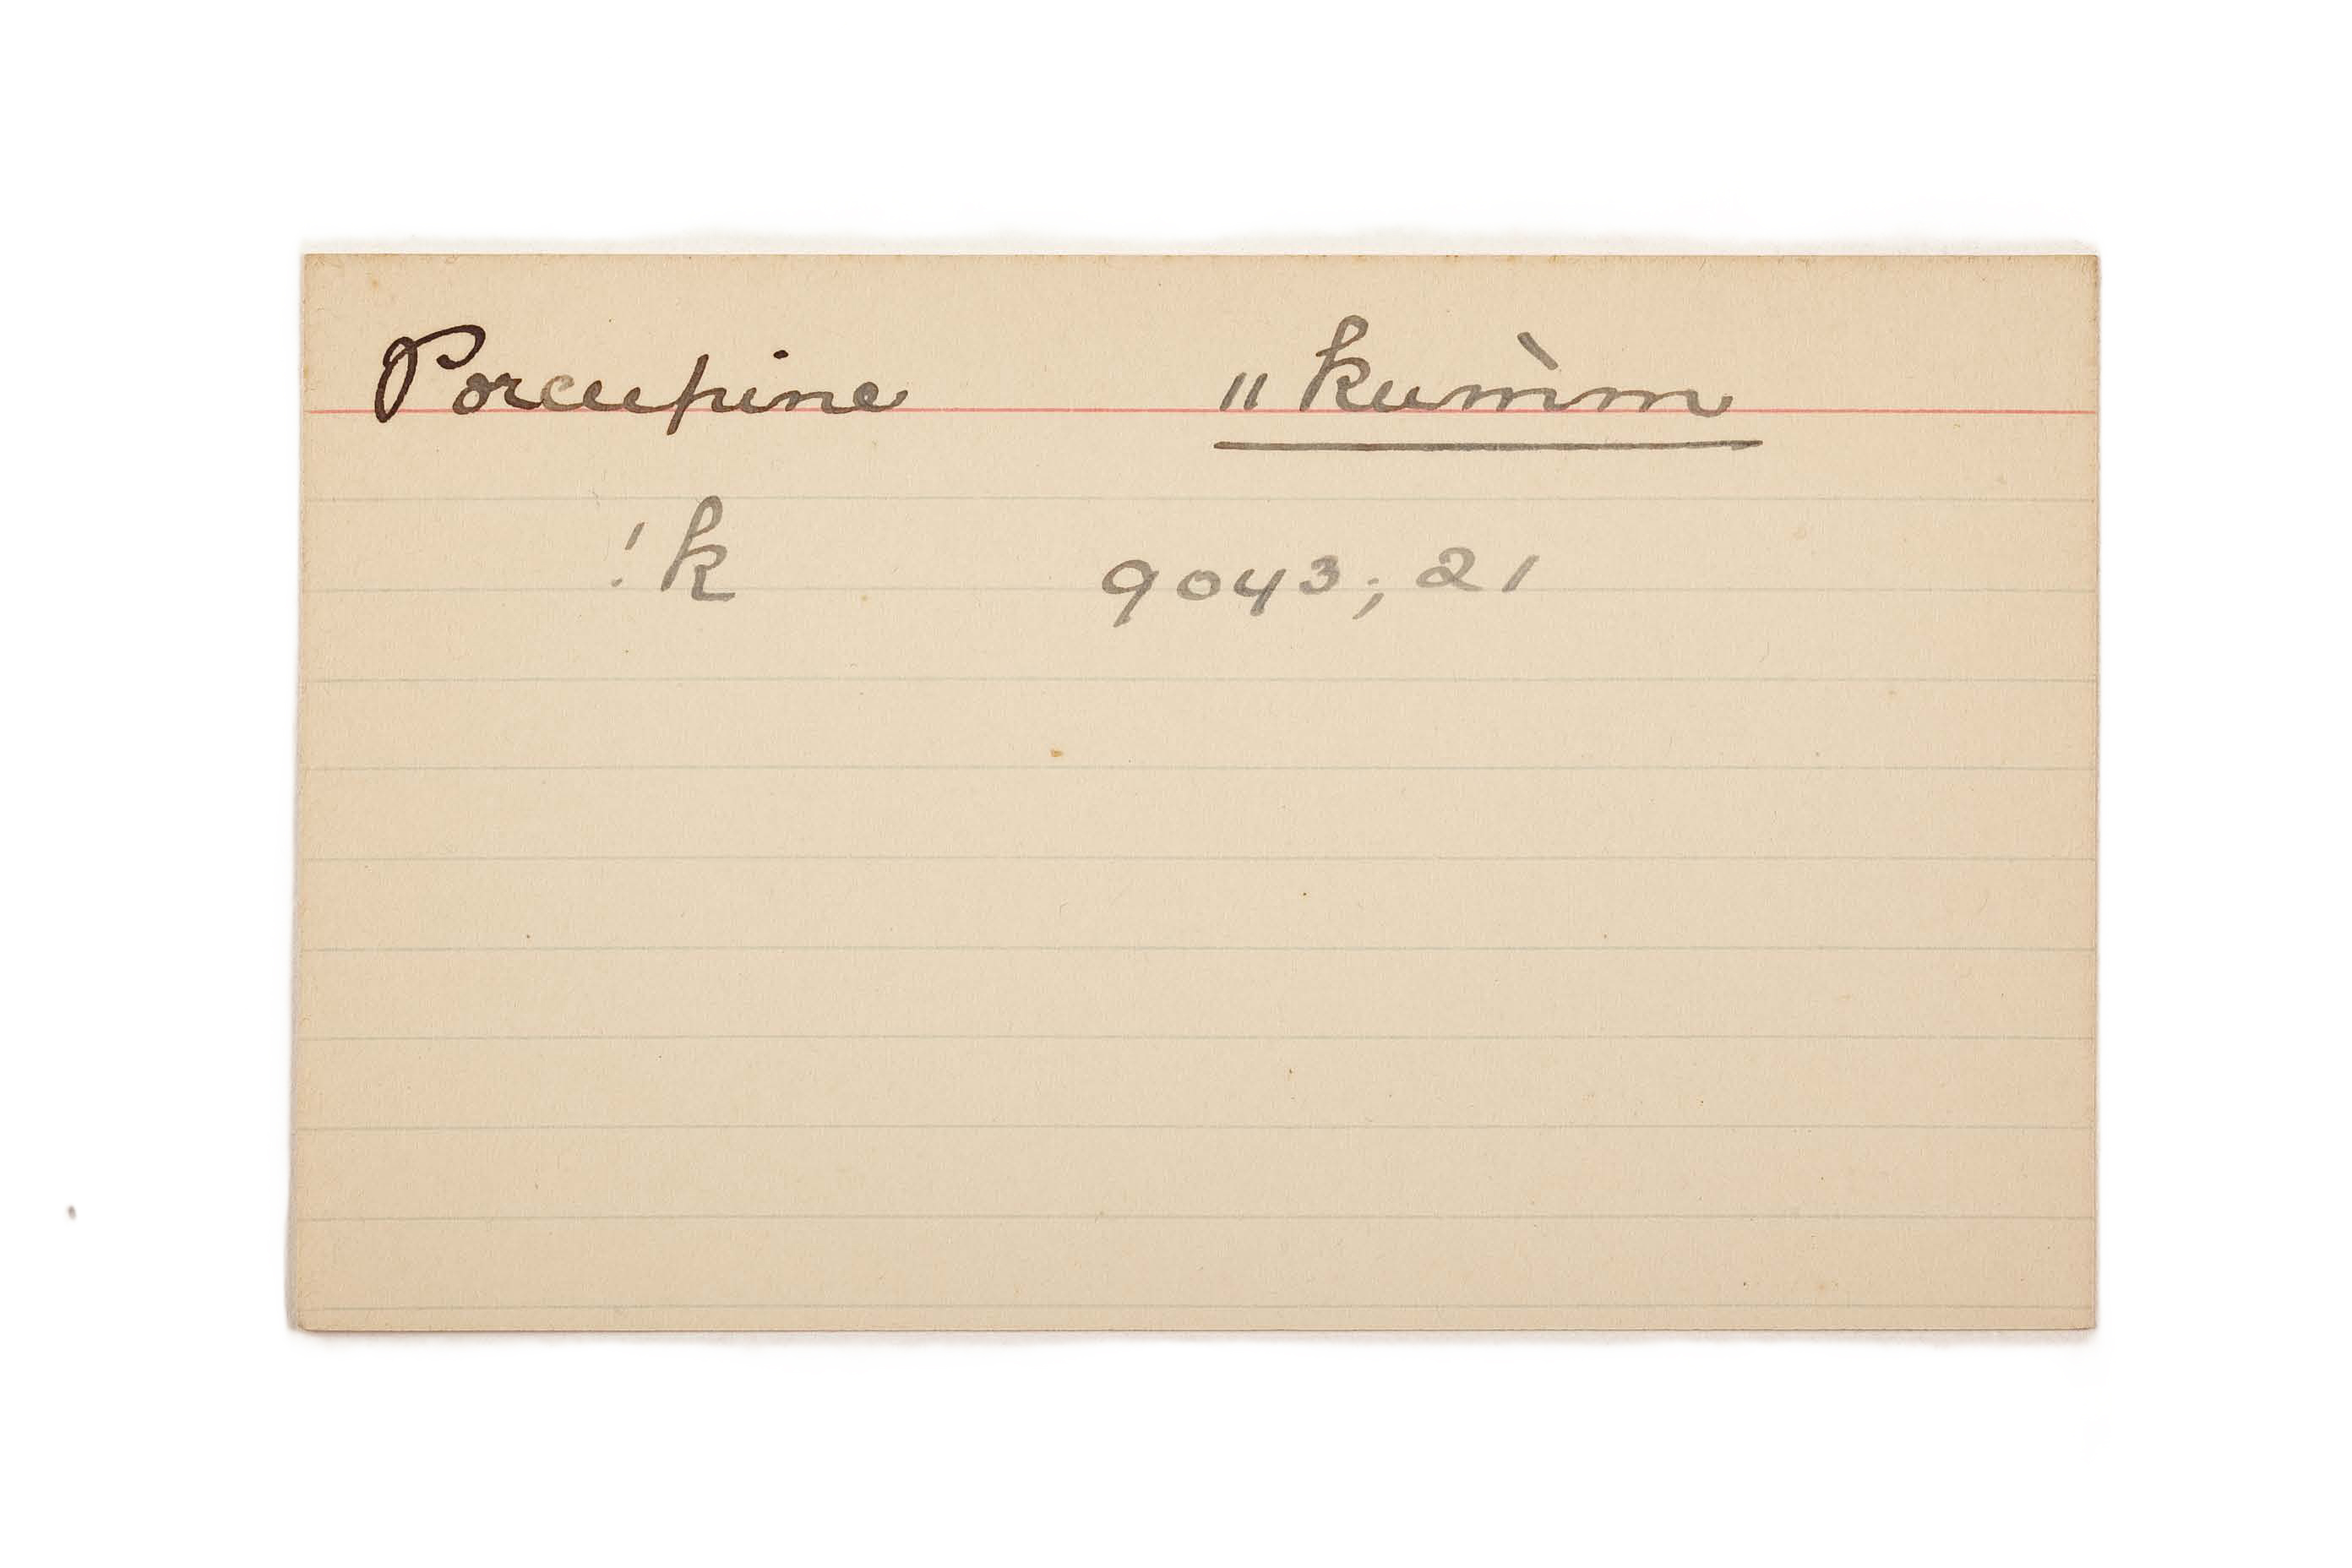 Porcupine ǁkum̀m
!k 9043; 21